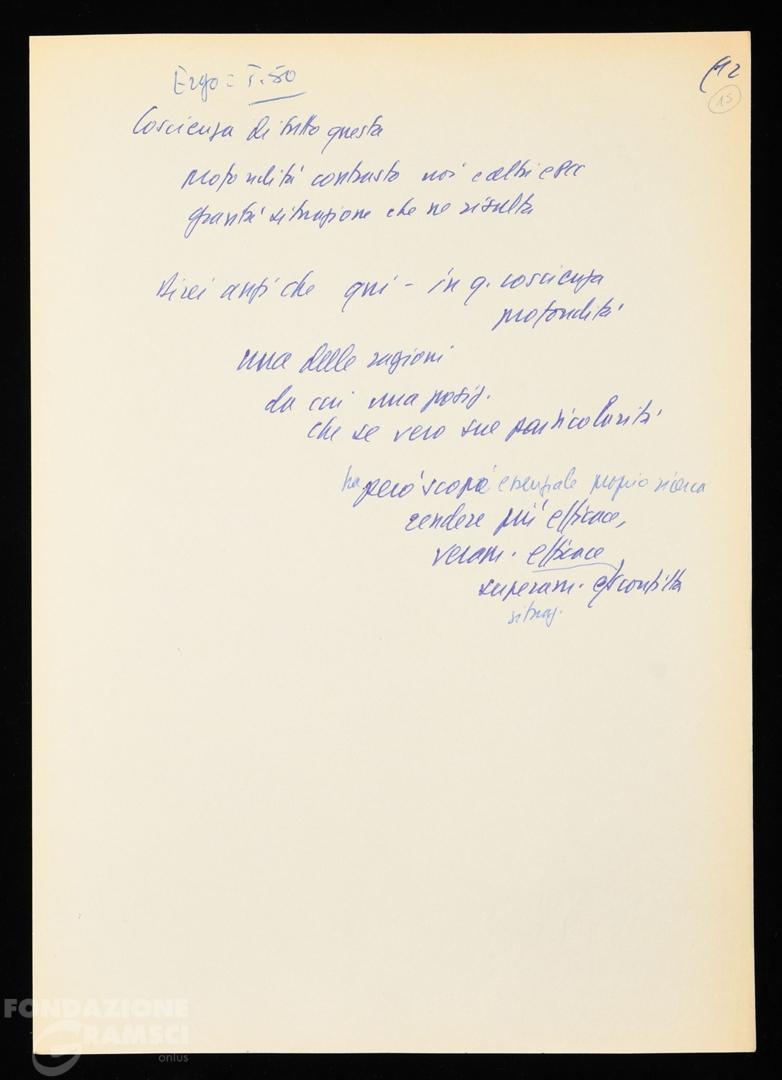 Ergo = 5.50
(12
15
Coscienza di tutto questo
profondità contrasto noi e altri e per
gravità situazione che ne risulta
Direi anzi che qui - in q. coscienza
profondità
una delle ragioni
da cui una posiz.
che se vero sue particolarità
ha però scopo essenziale proprio ricerca
rendere più efficace,
veram. efficace
superam. sconfitta
situaz.
FONDAZIONE
GRAMSCI
onlus